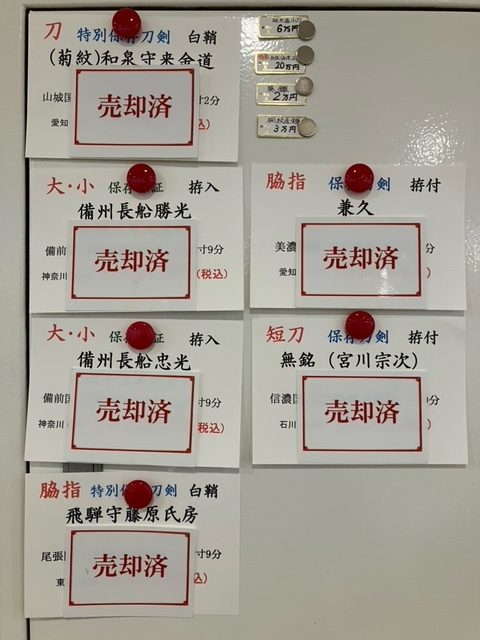 刀 特別保存刀剣 白鞘
(菊紋)和泉守来金道
山城国 寸2分
愛知 込)
売却済
6万円
20万円
2万円
3万円
大・小 保存 証 拵入
備州長船勝光
備前 寸9分
神奈川 (税込)
売却済
脇指 保存刀剣 拵付
兼久
美濃 分
愛知 )
売却済
大・小 保存 証 拵入
備州長船忠光
備前国 9分
神奈川 税込)
売却済
短刀 保存刀剣 拵付
無銘(宮川宗次)
信濃国 分
石川 )
売却済
脇指 特別保存刀剣 白鞘
飛騨守藤原氏房
尾張国 寸9分
東 込)
売却済